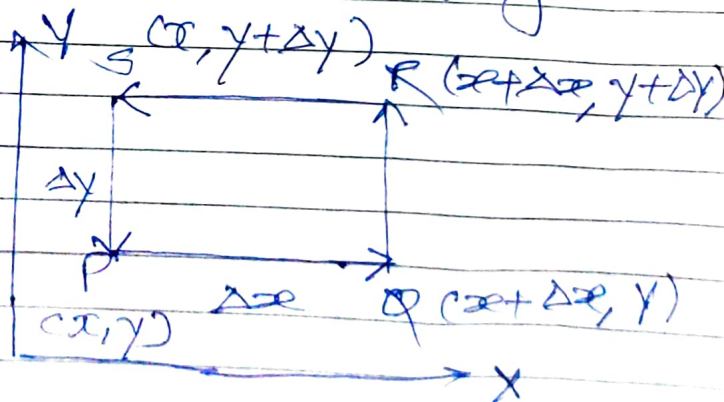 Y
S (x, y+Δy)
R (x+Δx, y+Δy)
Δy
P
Δx
Q (x+Δx, y)
(x, y)
X